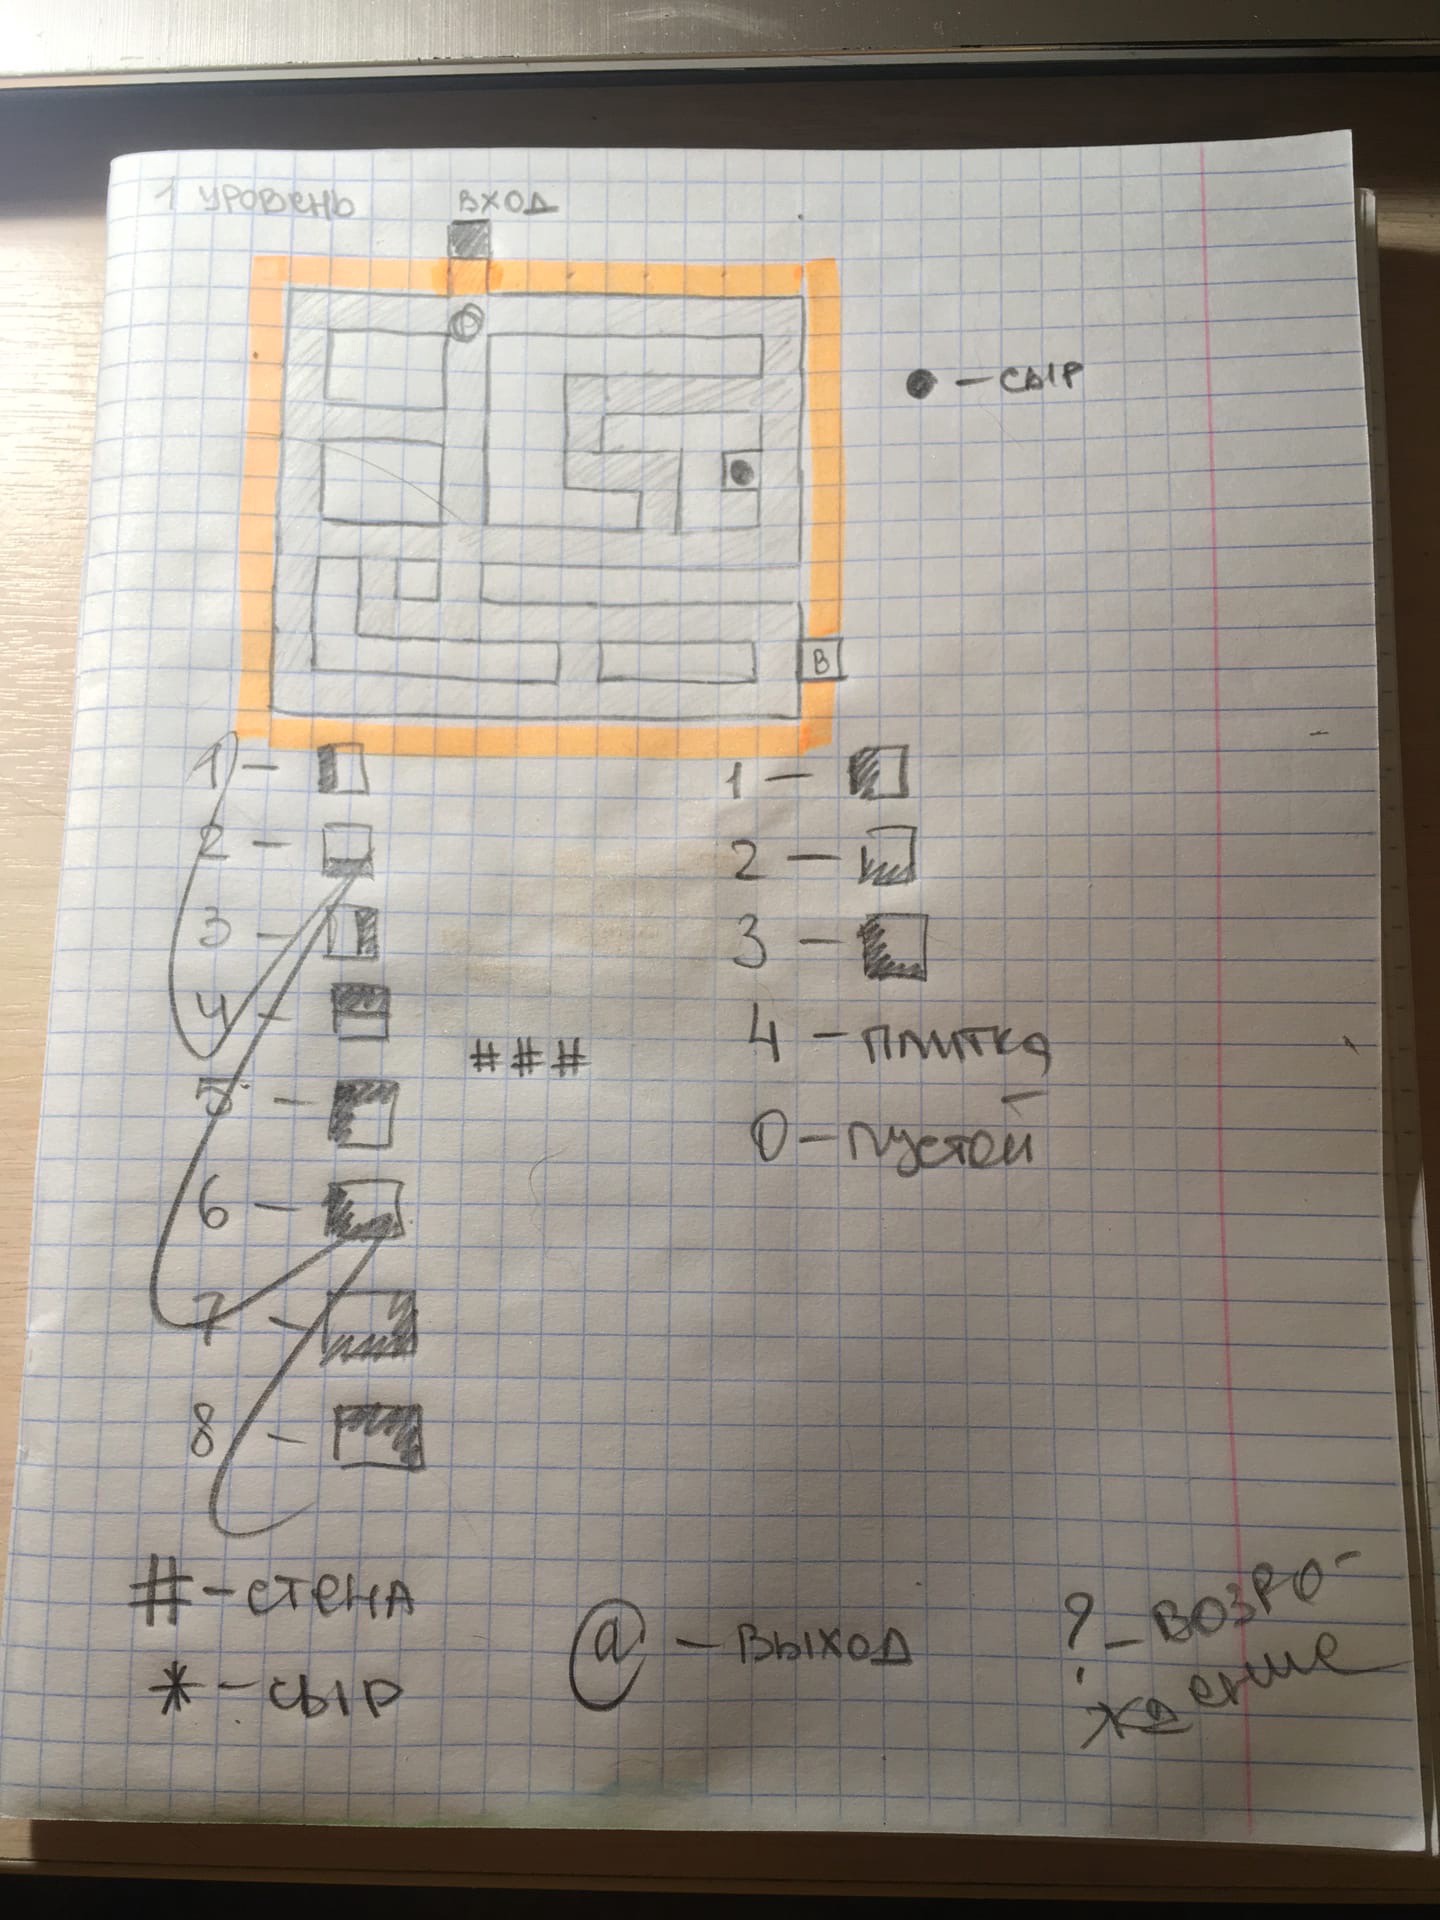 1 УРОВЕНЬ
ВХОД
● – СЫР
В
1 –
2 –
3 –
4 –
5 –
6 –
7 –
8 –
###
1 –
2 –
3 –
4 – ПЛИТКА
0 – ПУСТОЙ
# – СТЕНА
* – СЫР
@ – ВЫХОД
? – ВОЗРО-
ЖДЕНИЕ